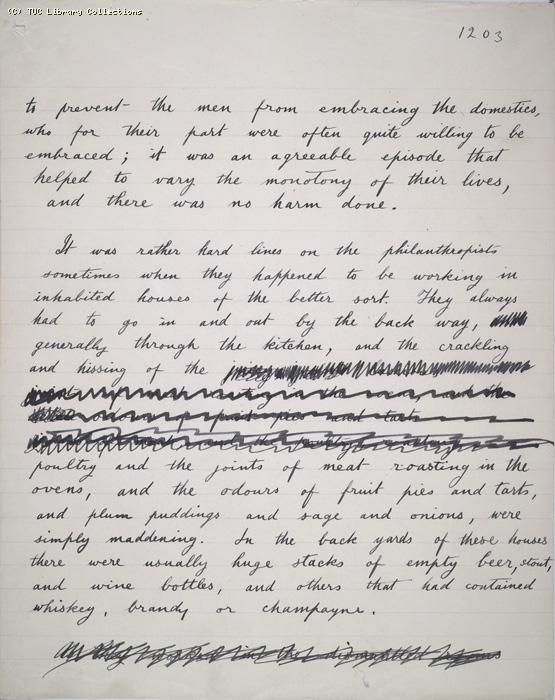 (C) TUC Library Collections
1203
to prevent the men from embracing the domestics,
who for their part were often quite willing to be
embraced; it was an agreeable episode that
helped to vary the monotony of their lives,
and there was no harm done.
It was rather hard lines on the philanthropists
sometimes when they happened to be working in
inhabited houses of the better sort. They always
had to go in and out by the back way,
generally through the kitchen, and the crackling
and hissing of the
poultry and the joints of meat roasting in the
ovens, and the odours of fruit pies and tarts,
and plum puddings and sage and onions, were
simply maddening. In the back yards of these houses
there were usually huge stacks of empty beer, stout,
and wine bottles, and others that had contained
whiskey, brandy or champagne.